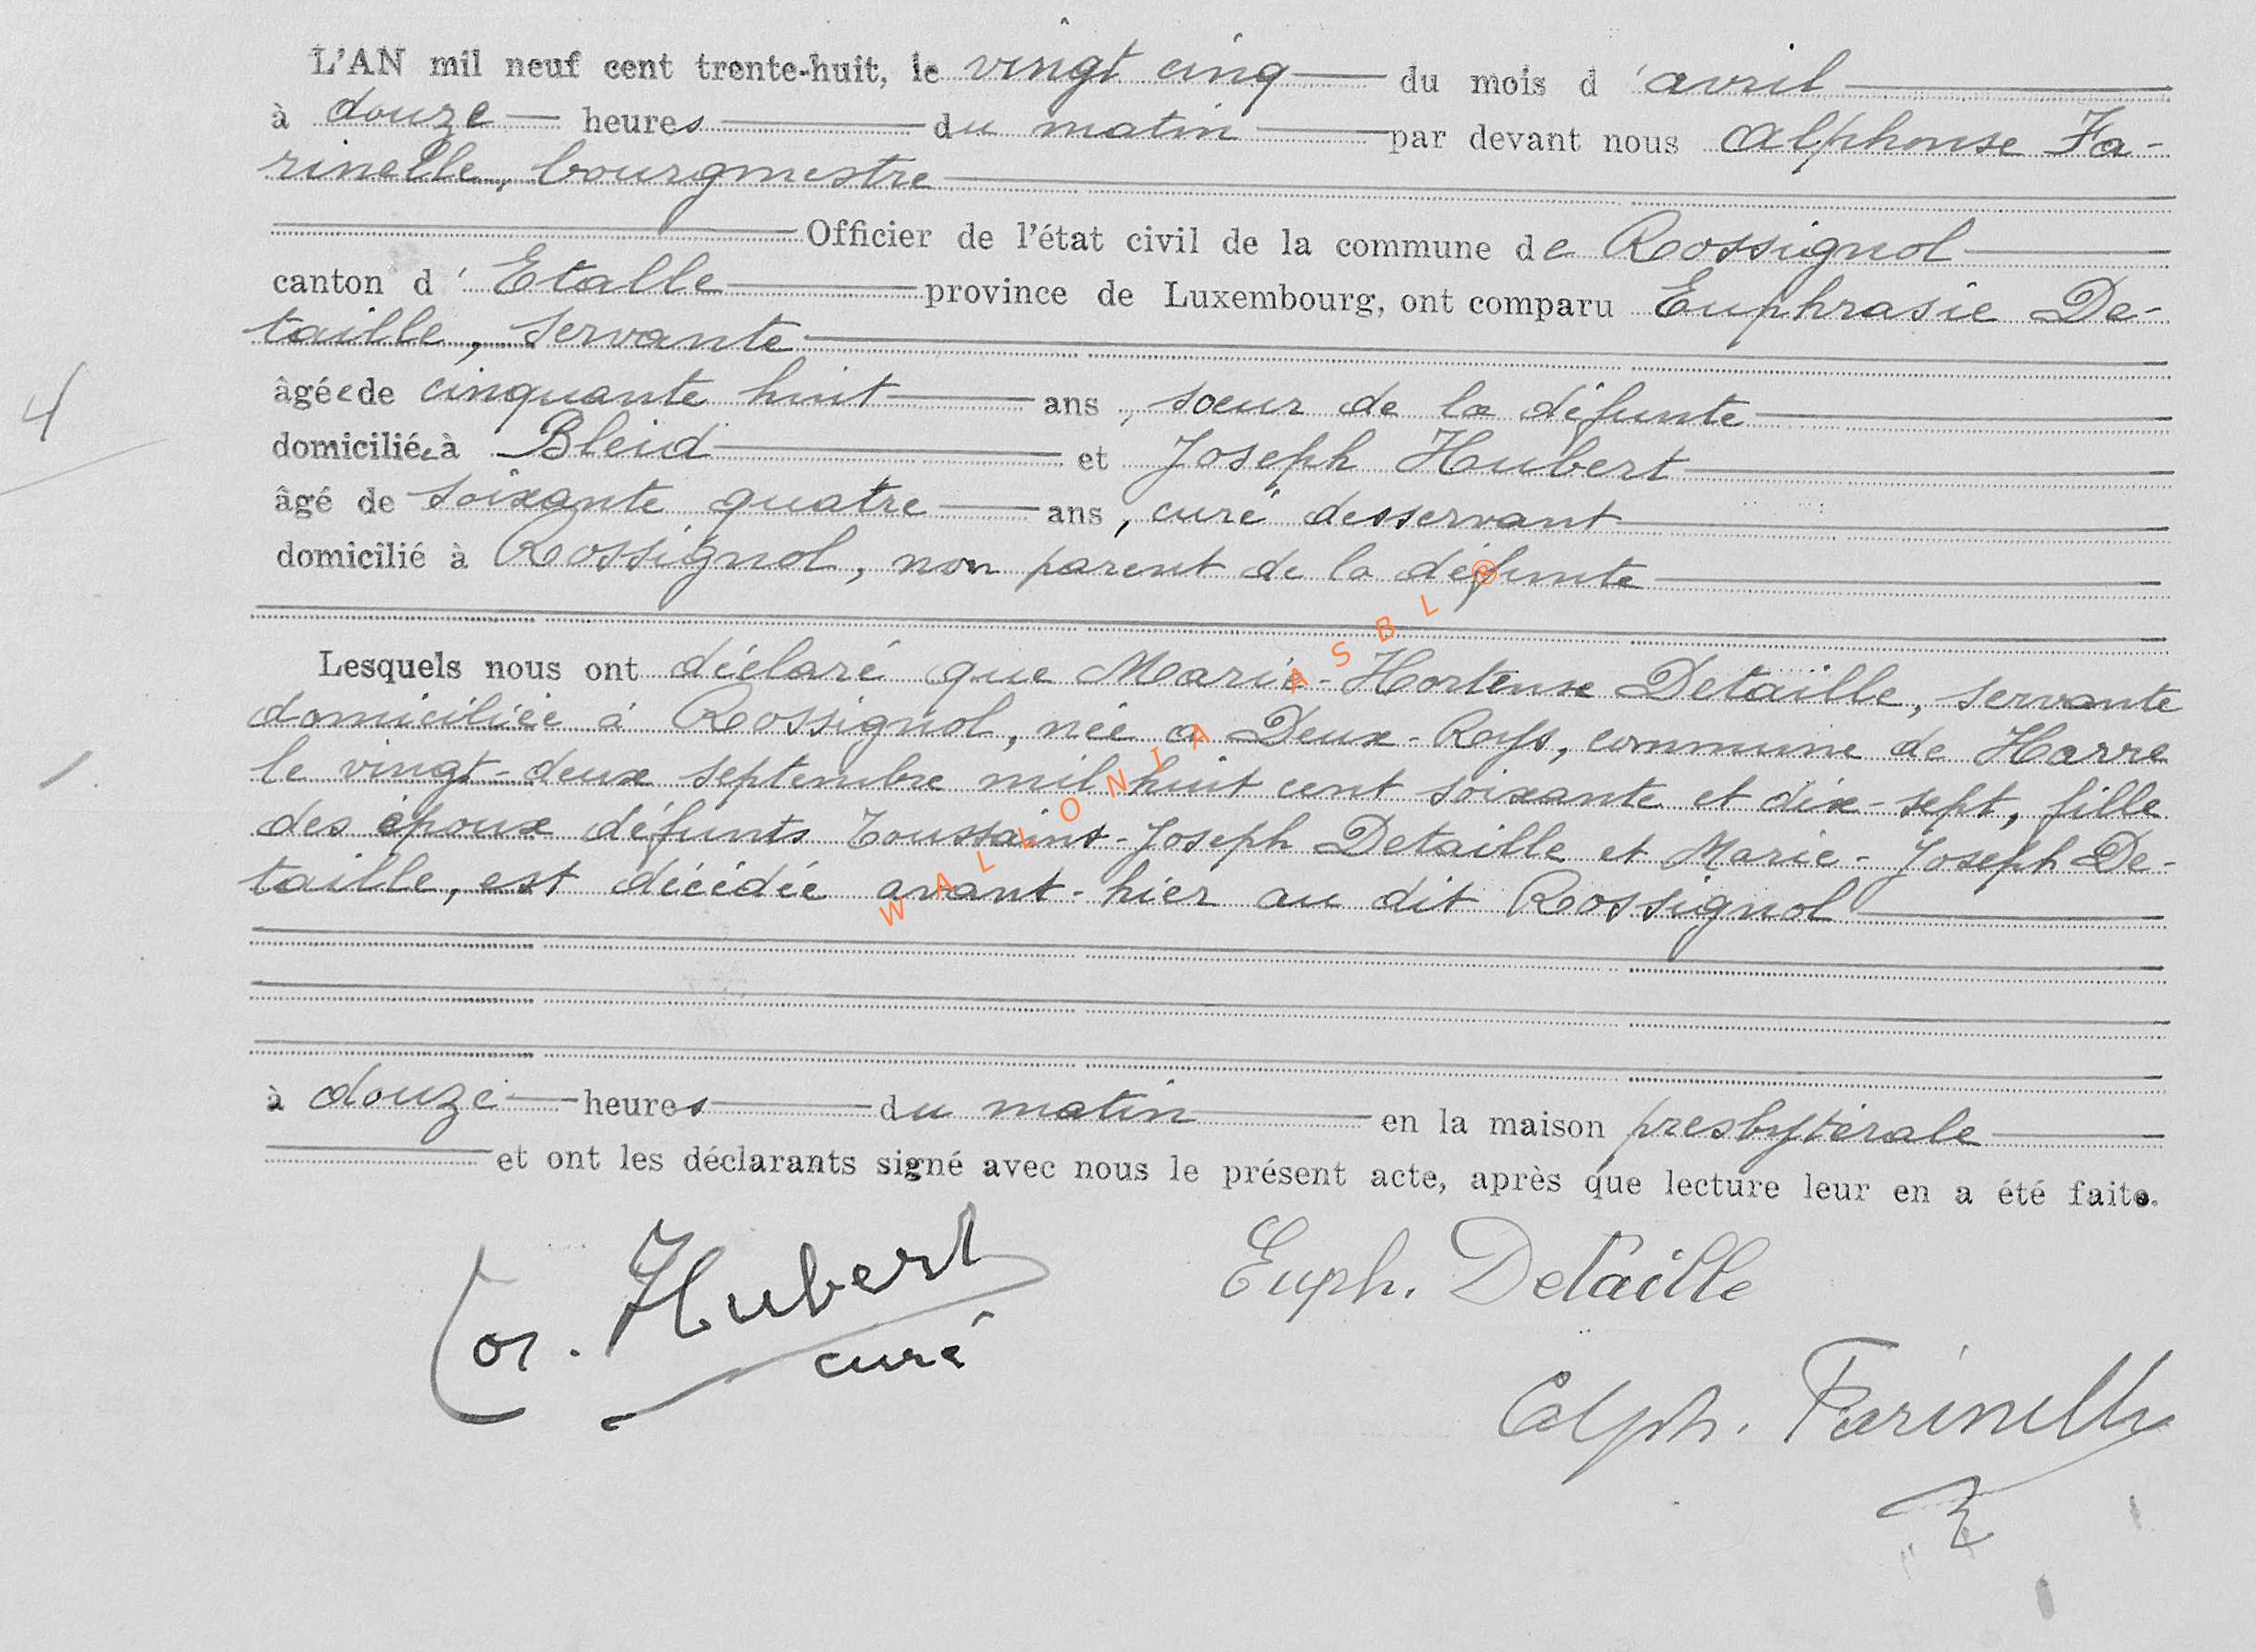 L'AN mil neuf cent trente-huit, le vingt cinq du mois d'avril
à douze heures du matin par devant nous Alphonse Fa-
rinelle, bourgmestre
Officier de l'état civil de la commune de Rossignol
canton d'Etalle province de Luxembourg, ont comparu Euphrasie De-
taille, servante
âgée de cinquante huit ans, sœur de la défunte
domiciliée à Bleid et Joseph Hubert
âgé de soixante quatre ans, curé desservant
domicilié à Rossignol, non parent de la défunte
Lesquels nous ont déclaré que Marie-Hortense Detaille, servante
domiciliée à Rossignol, née à Deux-Rys, commune de Harre
le vingt-deux septembre mil huit cent soixante et dix-sept, fille
des époux défunts Toussaint-Joseph Detaille et Marie-Joseph De-
taille, est décédée avant-hier au dit Rossignol
à douze heures du matin en la maison presbytérale
et ont les déclarants signé avec nous le présent acte, après que lecture leur en a été faite.
Hubert
curé
Euph. Detaille
Alph. Farinelle
4
1
WALLONIA ASBL ®